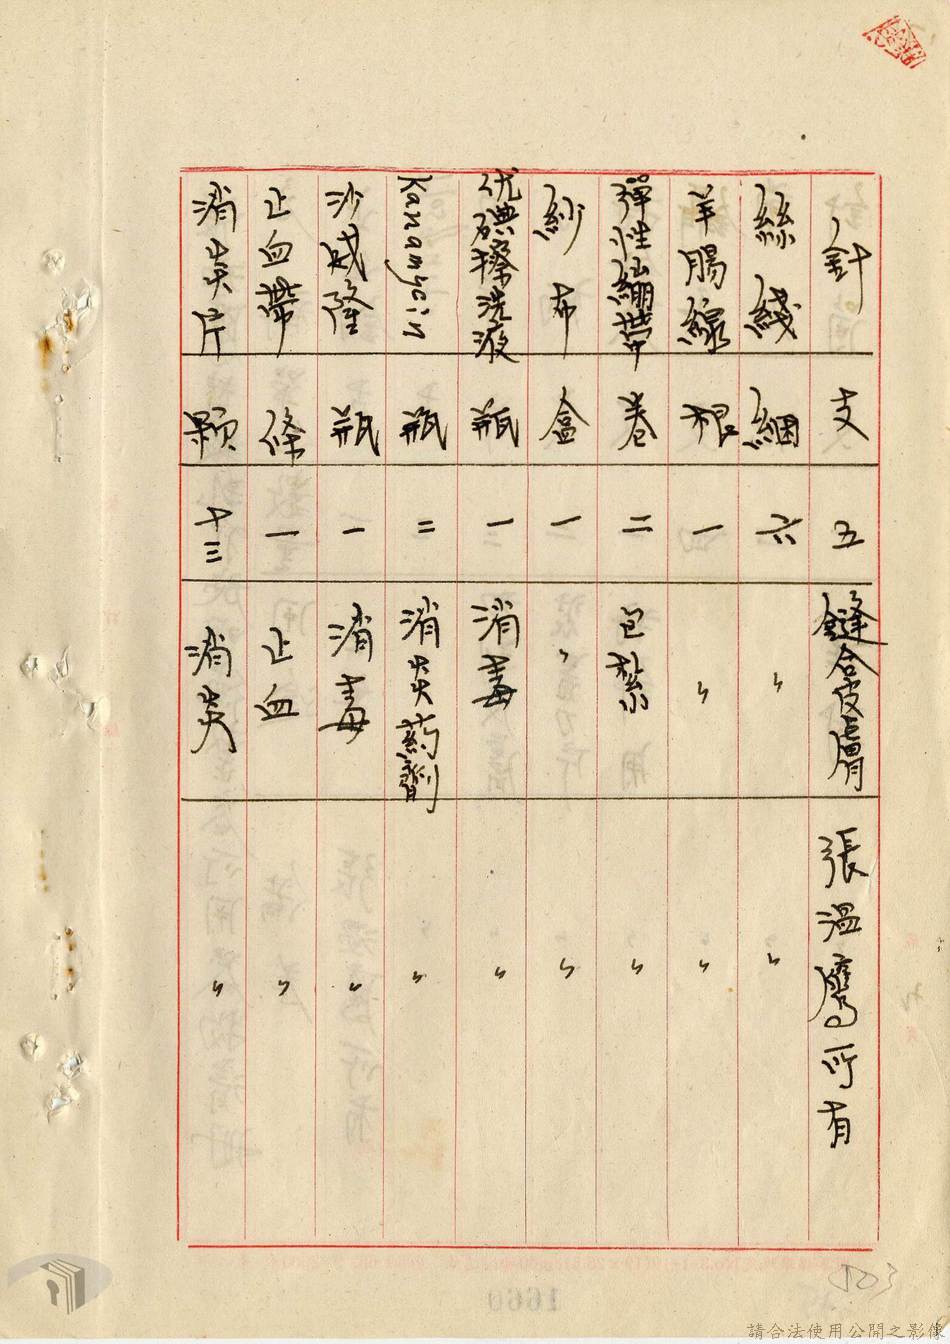 針 支 五 縫合皮膚 張溫鷹所有
絲綫 綑 六 〃 〃
羊腸線 根 一 〃 〃
彈性繃帶 卷 二 包紮 〃
紗布 盒 一 〃 〃
优碘擦洗液 瓶 一 消毒 〃
Kanamycin 瓶 二 消炎葯劑 〃
沙威隆 瓶 一 消毒 〃
止血帶 條 一 止血 〃
消炎片 顆 十三 消炎 〃
503
1660
請合法使用公開之影像